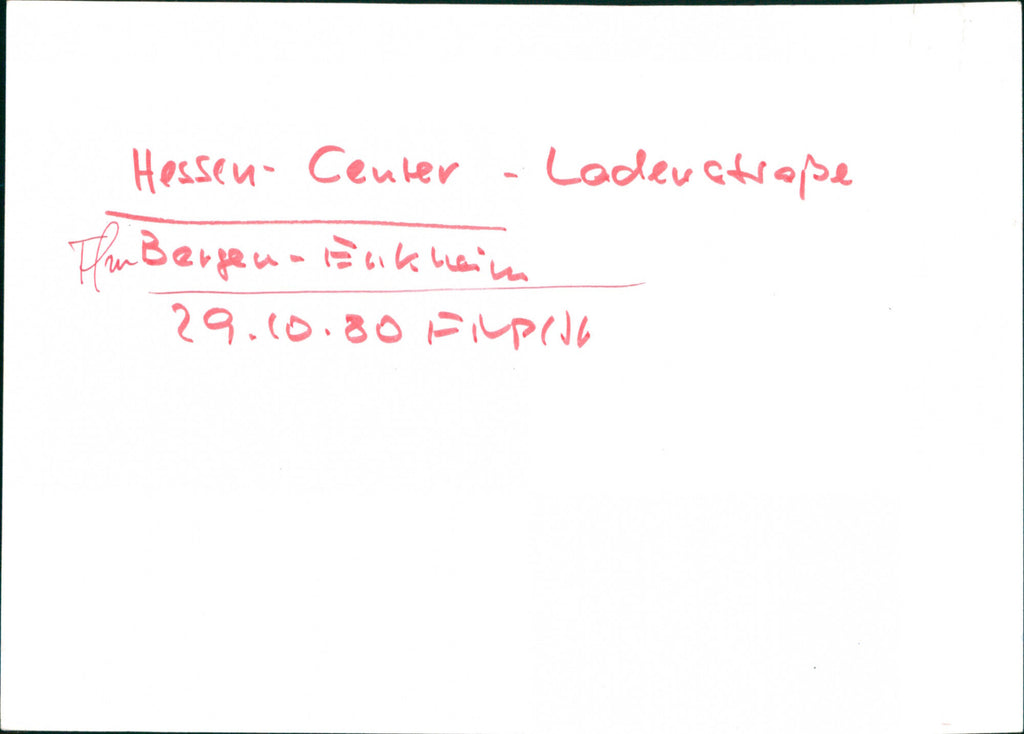 Hessen- Center - Ladenstraße
Ffm Bergen - Enkheim
29.10.80